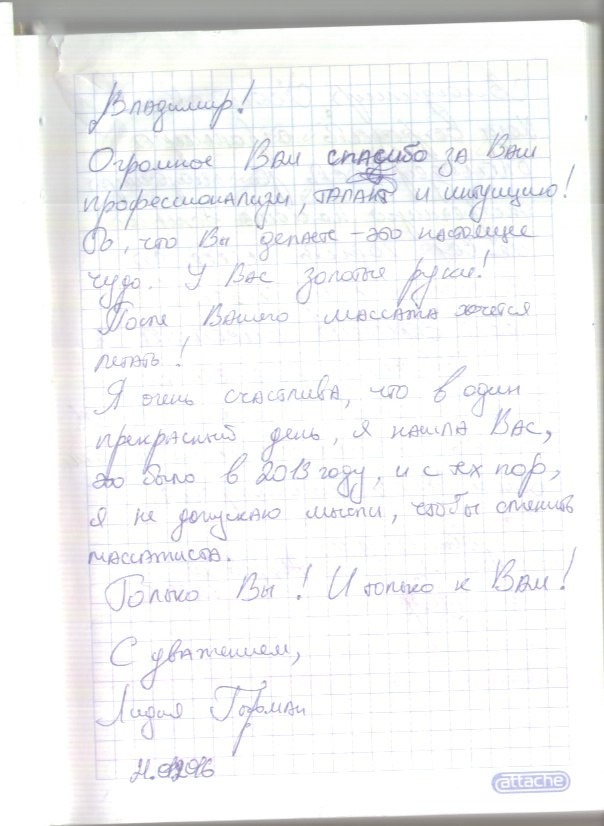 Владимир!
Огромное Вам спасибо за Ваш
профессионализм, талант и интуицию!
То, что Вы делаете – это настоящее
чудо. У Вас золотые руки!
После Вашего массажа хочется
летать!
Я очень счастлива, что в один
прекрасный день, я нашла Вас,
это было в 2013 году, и с тех пор,
я не допускаю мысли, чтобы сменить
массажиста.
Только Вы! И только к Вам!
С уважением,
Лидия
attache